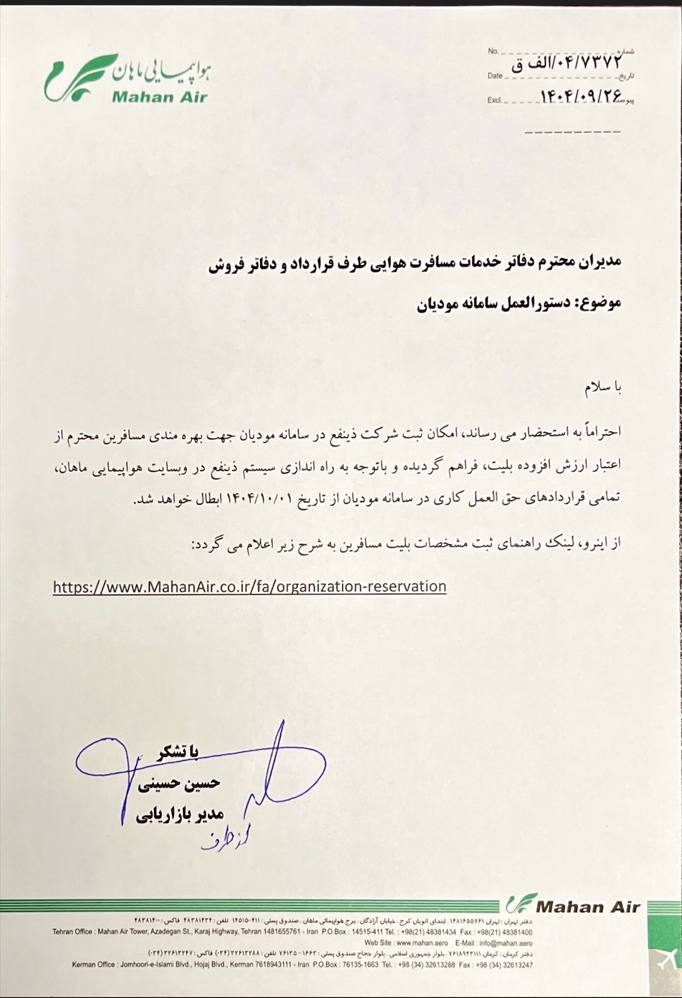 هواپیمایی ماهان
Mahan Air
شماره ۰۴/۷۳۷۲/الف ق No.
تاریخ Date
۱۴۰۴/۰۹/۲۶ Excl.
مدیران محترم دفاتر خدمات مسافرت هوایی طرف قرارداد و دفاتر فروش
موضوع: دستورالعمل سامانه مودیان
با سلام
احتراماً به استحضار می رساند، امکان ثبت شرکت ذینفع در سامانه مودیان جهت بهره مندی مسافرین محترم از
اعتبار ارزش افزوده بلیت، فراهم گردیده و باتوجه به راه اندازی سیستم ذینفع در وبسایت هواپیمایی ماهان،
تمامی قراردادهای حق العمل کاری در سامانه مودیان از تاریخ ۱۴۰۴/۱۰/۰۱ ابطال خواهد شد.
از اینرو، لینک راهنمای ثبت مشخصات بلیت مسافرین به شرح زیر اعلام می گردد:
https://www.MahanAir.co.ir/fa/organization-reservation
با تشکر
حسین حسینی
مدیر بازاریابی
از طرف
Mahan Air
دفتر تهران: تهران ۱۴۸۱۶۵۵۷۶۱، ابتدای اتوبان کرج، خیابان آزادگان، برج هواپیمائی ماهان، صندوق پستی: ۴۱۱-۱۴۵۱۵ تلفن: ۴۸۳۸۱۴۳۴ فاکس: ۴۸۳۸۱۴۰۰
Tehran Office : Mahan Air Tower, Azadegan St., Karaj Highway, Tehran 1481655761 - Iran P.O.Box : 14515-411 Tel. : +98(21) 48381434 Fax : +98(21) 48381400
Web Site : www.mahan.aero E-Mail : info@mahan.aero
دفتر کرمان: کرمان ۷۶۱۸۹۴۳۱۱۱، بلوار جمهوری اسلامی، بلوار حجاج صندوق پستی: ۱۶۶۳-۷۶۱۳۵ تلفن: ۳۲۶۱۳۲۸۸ (۰۳۴) فاکس: ۳۲۶۱۳۲۴۷ (۰۳۴)
Kerman Office : Jomhoori-e-Islami Blvd., Hojaj Blvd., Kerman 7618943111 - Iran P.O.Box : 76135-1663 Tel. : +98 (34) 32613288 Fax : +98 (34) 32613247